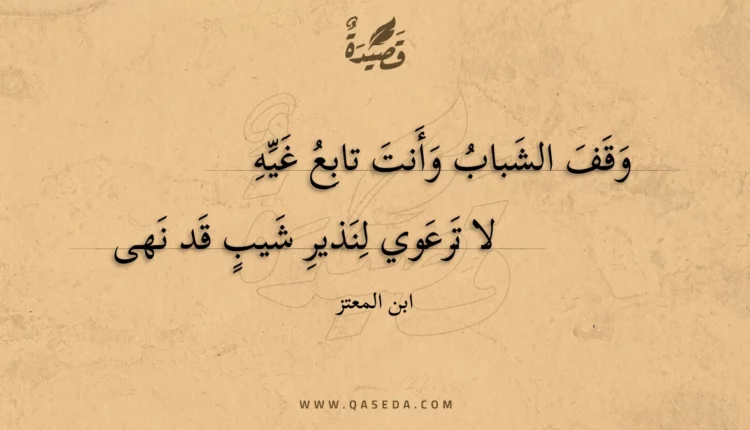 قَصِيدَةٌ
وَقَفَ الشَبابُ وَأَنتَ تابِعُ غَيِّهِ
لا تَرعَوي لِنَذيرِ شَيبٍ قَد نَهى
ابن المعتز
WWW.QASEDA.COM